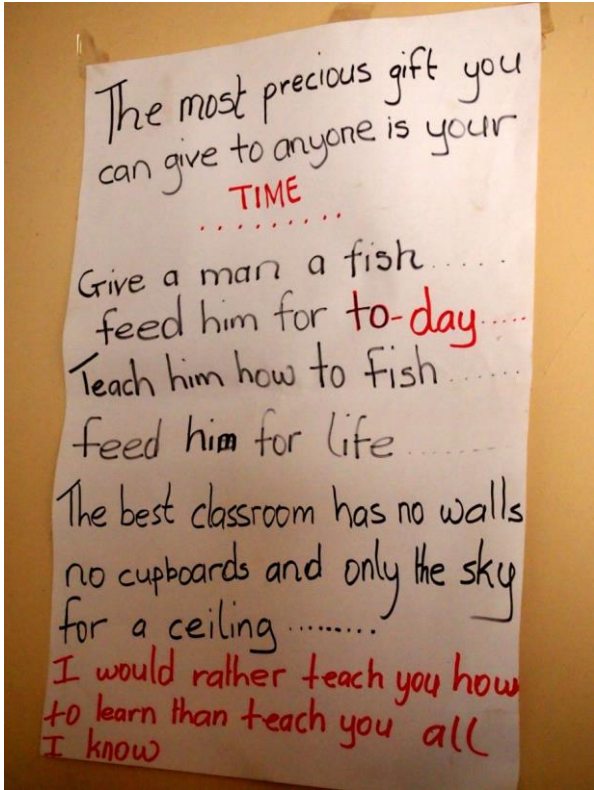 The most precious gift you
can give to anyone is your
TIME
.........
Give a man a fish.....
feed him for to-day.....
Teach him how to fish......
feed him for life........
The best classroom has no walls
no cupboards and only the sky
for a ceiling.........
I would rather teach you how
to learn than teach you all
I know